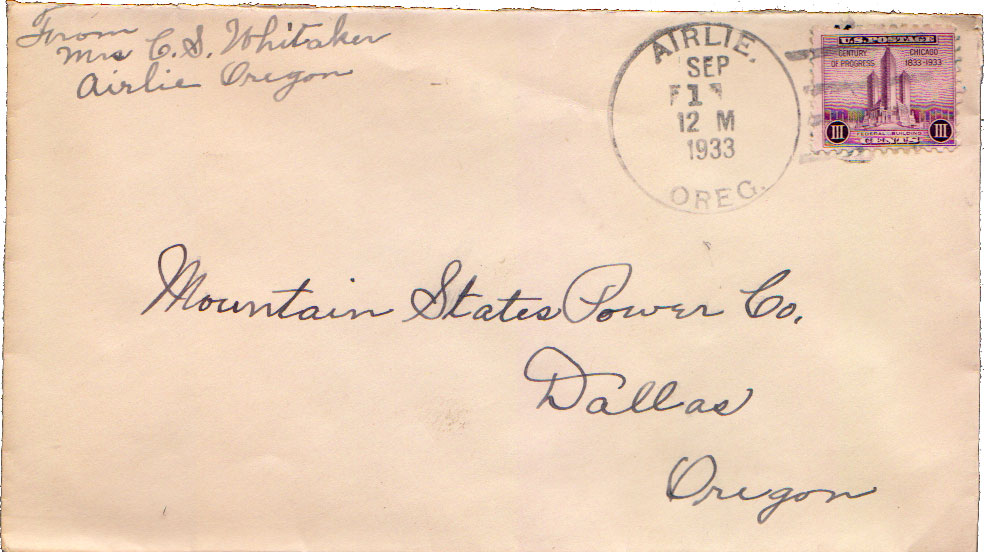 From
Mrs C. S. Whitaker
Airlie Oregon
AIRLIE.
SEP
12 M
1933
OREG.
U.S. POSTAGE
CENTURY OF PROGRESS
CHICAGO 1833-1933
III
FEDERAL BUILDING
III
CENTS
Mountain States Power Co.
Dallas
Oregon